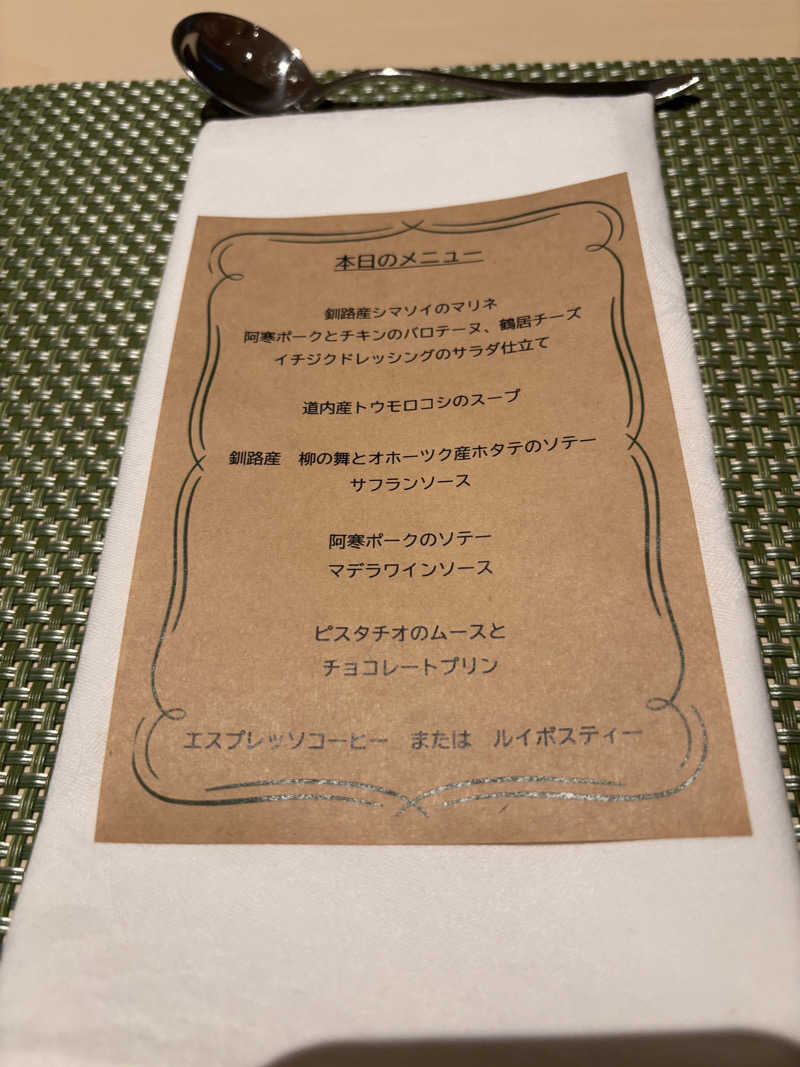 本日のメニュー
釧路産シマソイのマリネ
阿寒ポークとチキンのバロテーヌ、鶴居チーズ
イチジクドレッシングのサラダ仕立て
道内産トウモロコシのスープ
釧路産　柳の舞とオホーツク産ホタテのソテー
サフランソース
阿寒ポークのソテー
マデラワインソース
ピスタチオのムースと
チョコレートプリン
エスプレッソコーヒー　または　ルイボスティー